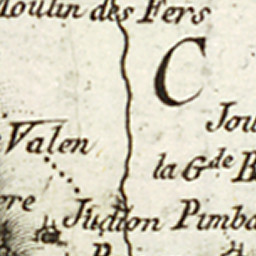 Moulin des Fers
C
Jou
Valen
la Gde B
ere
Judion Pimba
P